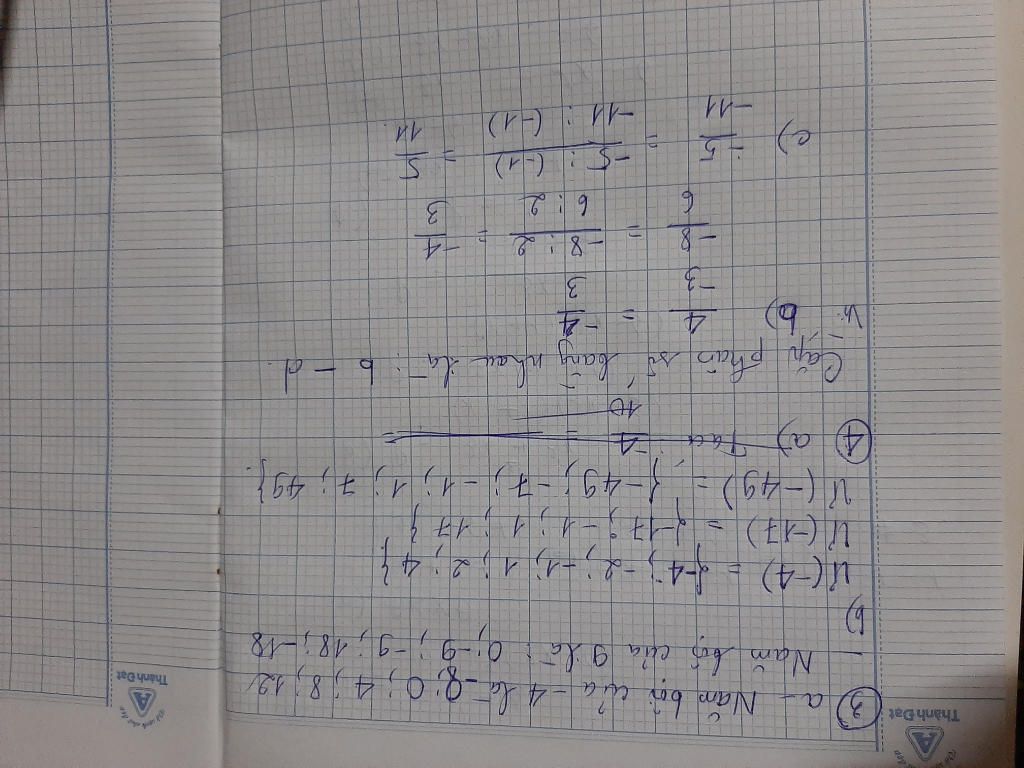 Thành Đạt
Thành Đạt
③ a - Năm bội của -4 là -8; 0; 4; 8; 12
- Năm bội của 9 là: 0; -9; -9; 18; -18
b)
Ư(-4) = {-4; -2; -1; 1; 2; 4}
Ư(-17) = {-17; -1; 1; 17}
Ư(-49) = {-49; -7; -1; 1; 7; 49}.
④ a) -4 =
10
Cặp phân số bằng nhau là: b - d.
Vì: b) 4/-3 = -4/3
-8/6 = -8:2/6:2 = -4/3
c) -5/-11 = -5:(-1)/-11:(-1) = 5/11.